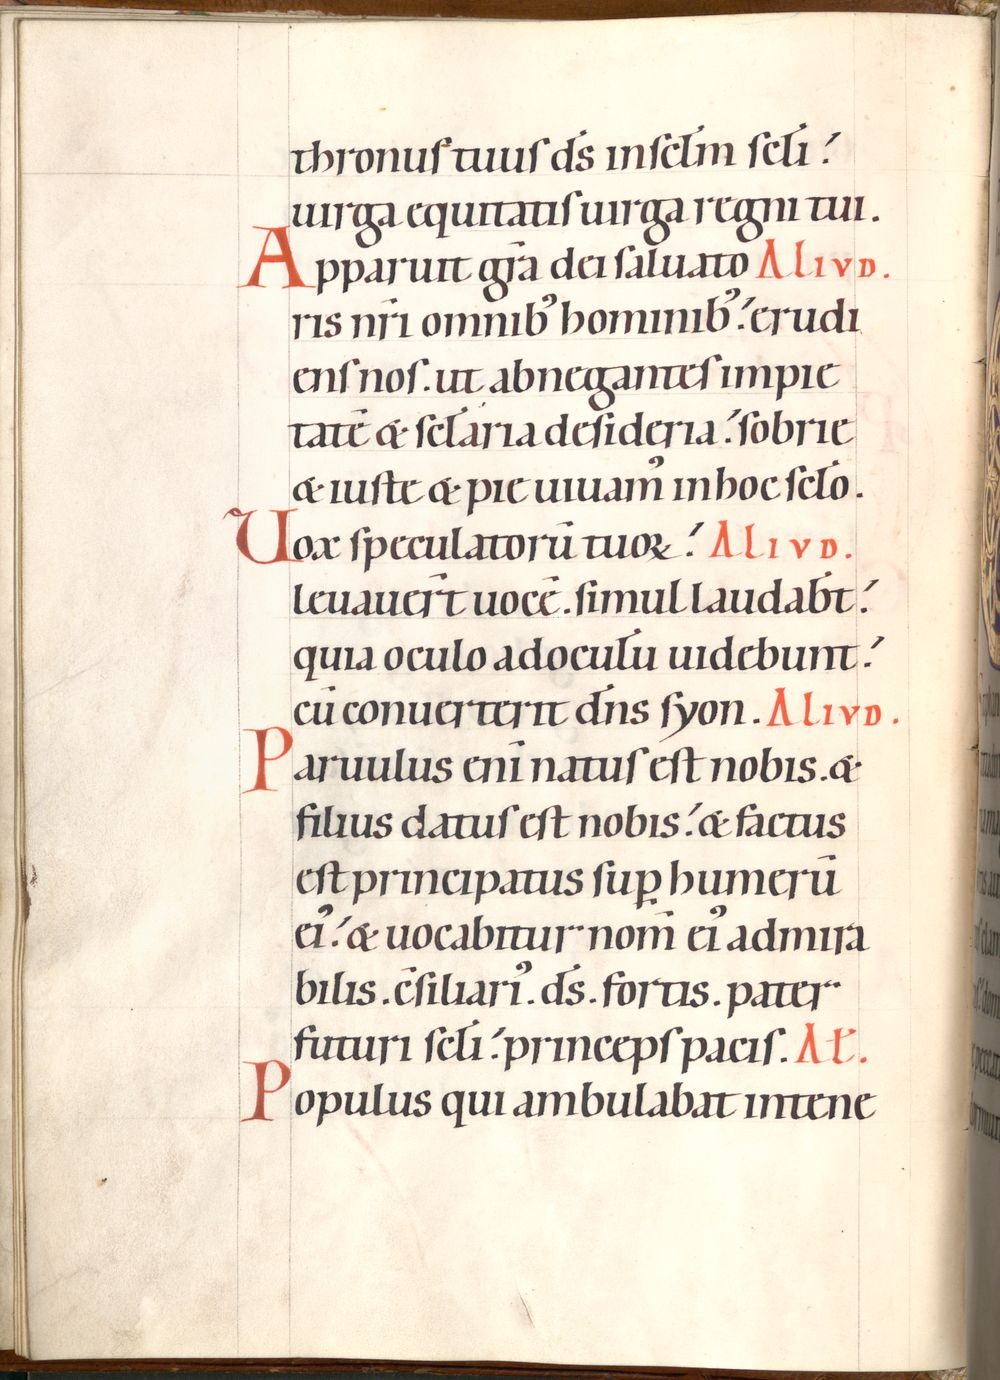 thronus tuus d̄s in sc̄lm sc̄li
uirga equitatis uirga regni tui.
Apparuit gr̄a dei saluato ALIVD.
ris nr̄i omnibꝰ hominibꝰ: erudi
ens nos. ut abnegantes impie
tatē & sc̄laria desideria: sobrie
& iuste & pie uiuamꝰ in hoc sc̄lo.
Uox speculatorū tuoꝝ: ALIVD.
leuauer̄t uocē. simul laudab̄t:
quia oculo ad ocul̄u uidebunt:
cū conuerterit dn̄s syon. ALIVD.
Paruulus eni̅ natus est nobis. &
filius datus est nobis: & factus
est principatus suꝑ humerū
eiꝰ: & uocabitur nom̄ eiꝰ admira
bilis. c̄siliariꝰ. d̄s. fortis. pater
futuri sc̄li: princeps pacis. AL̄.
Populus qui ambulabat in tene